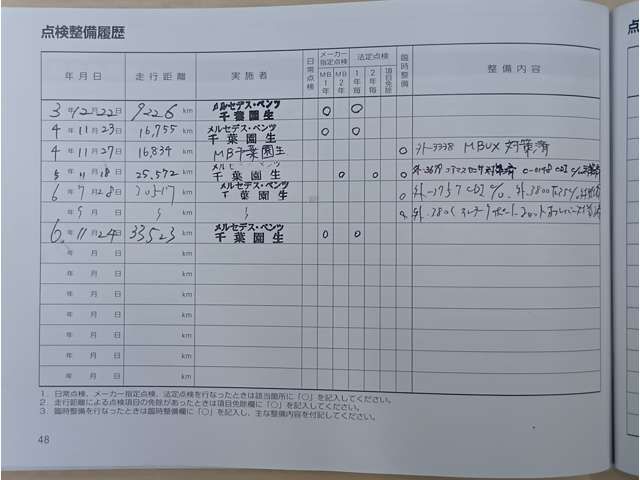 点検整備履歴
年月日 走行距離 実施者 日常点検 メーカー指定点検 法定点検 臨時整備 整備内容
MB1年 MB2年 1年毎 2年毎 項目免除
3年12月22日 9226km メルセデス・ベンツ千葉園生 ○ ○
4年11月23日 16,755km メルセデス・ベンツ千葉園生 ○ ○
4年11月27日 16,834km MB千葉園生 ○ 外-3338 MBUX対策済
5年11月18日 25,572km メルセデス・ベンツ千葉園生 ○ ○ ○
6年7月28日 30517km メルセデス・ベンツ千葉園生 ○
年 月 日 km ○
6年11月24日 33523km メルセデス・ベンツ千葉園生 ○ ○
年 月 日 km
年 月 日 km
年 月 日 km
年 月 日 km
年 月 日 km
年 月 日 km
年 月 日 km
1. 日常点検、メーカー指定点検、法定点検を行なったときは該当箇所に「○」を記入してください。
2. 走行距離による点検項目の免除があったときは項目免除欄に「○」を記入してください。
3. 臨時整備を行なったときは臨時整備欄に「○」を記入し、主な整備内容を付記してください。
48